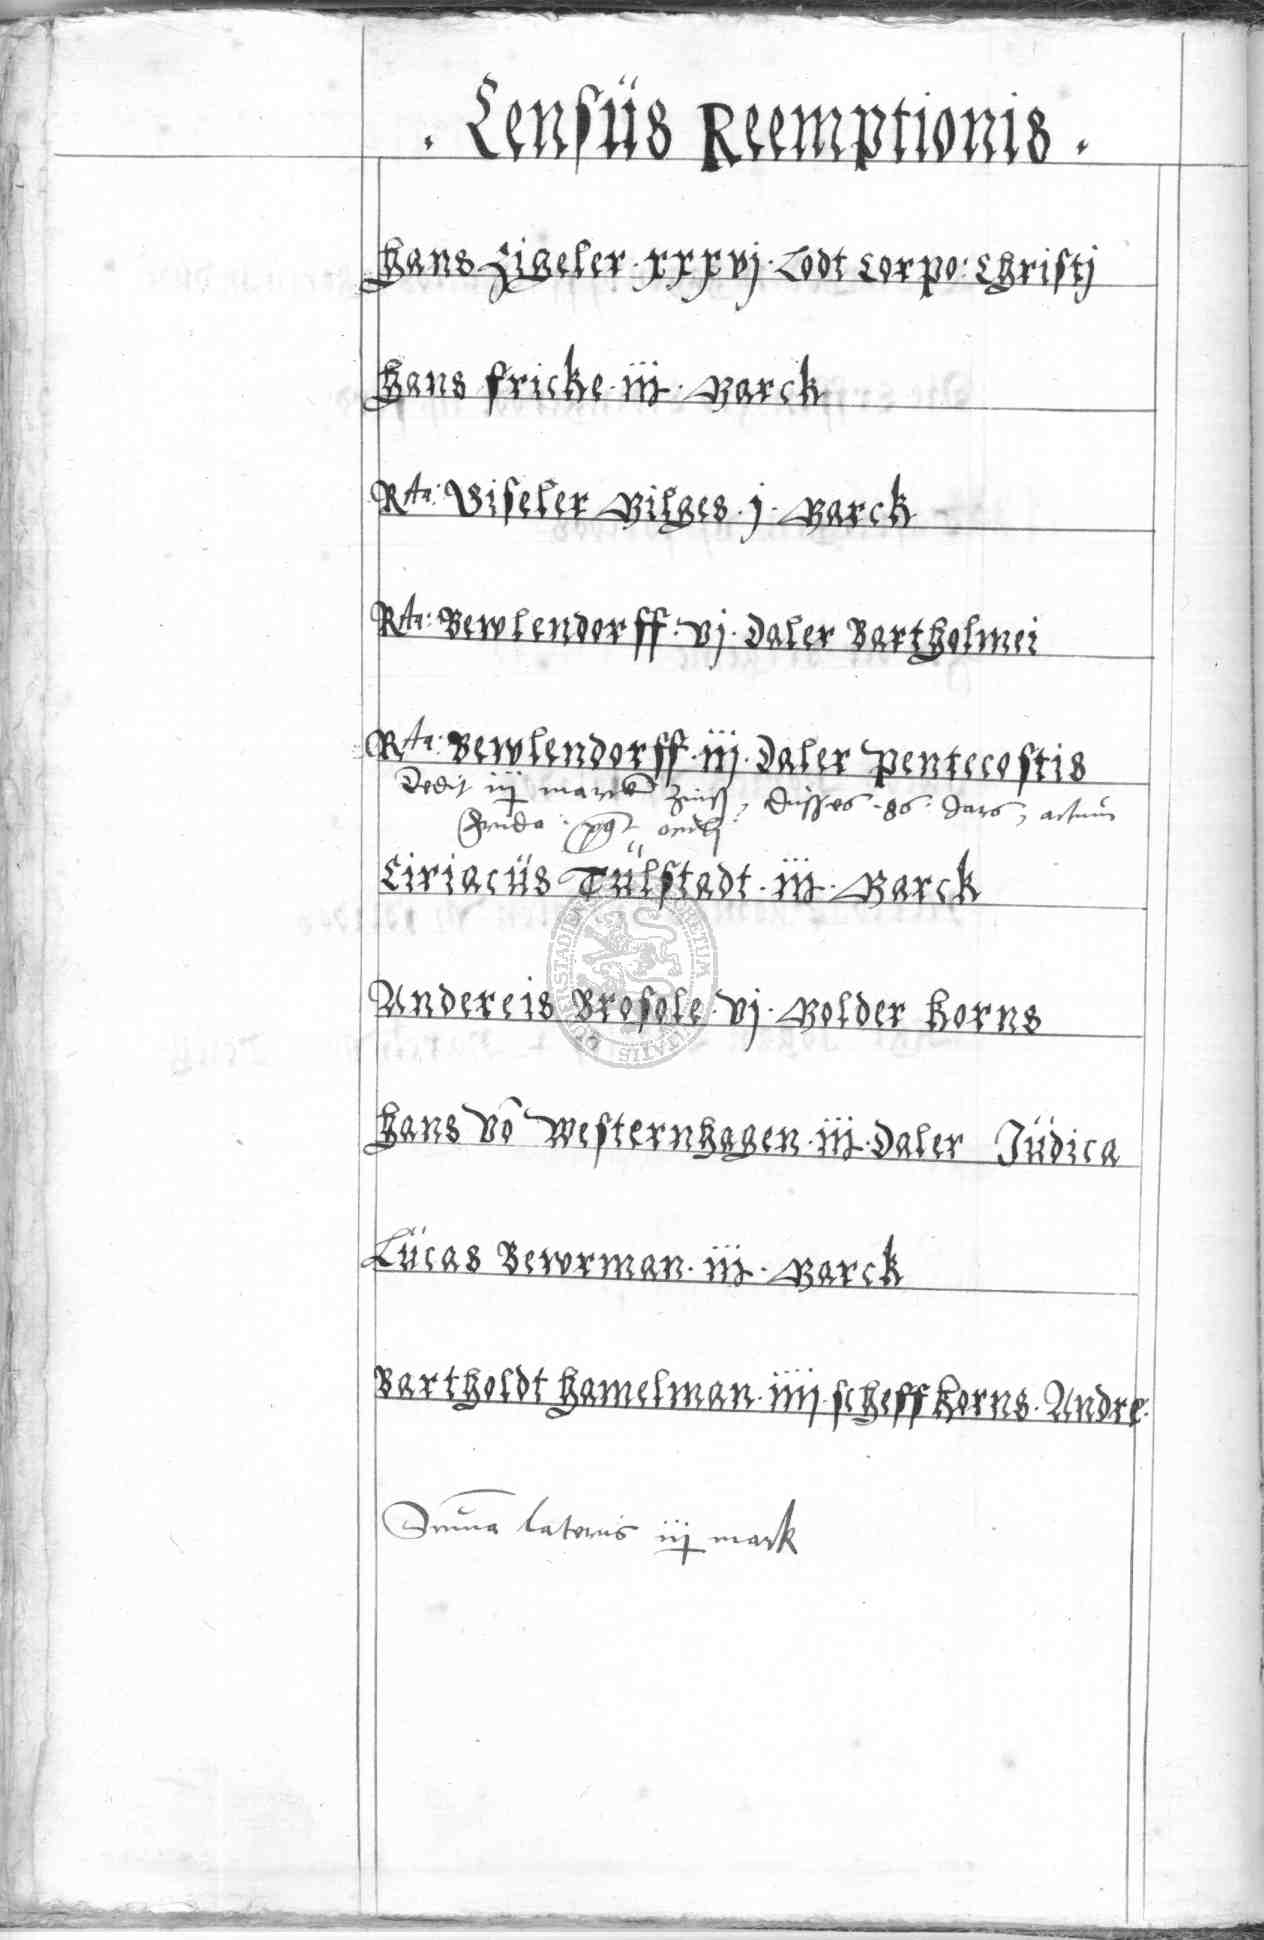 . Censüs Reemptionis .
Hans Zigeler · xxxvj · Lodt Corpo: Christj
Hans fricke · iij · Marck
Rta: Giseler Gilges · j · Marck
Rta: Bewlendorff · vj · daler Bartholmei
Rta: Bewlendorff · iij · daler Pentecostis
Dedit iij marck Zinss, dusses 86 Jars, actum
Ciriacüs Tülstadt · iij · Marck
Andereis Brosole · vj · Molder Korns
Hans võ Westernhagen · iij · daler Jüdica
Lücas Bewrman · iij · Marck
Bartholdt Hamelman · iiij · scheff Korns · Andre ·
Summa lateris iij mark